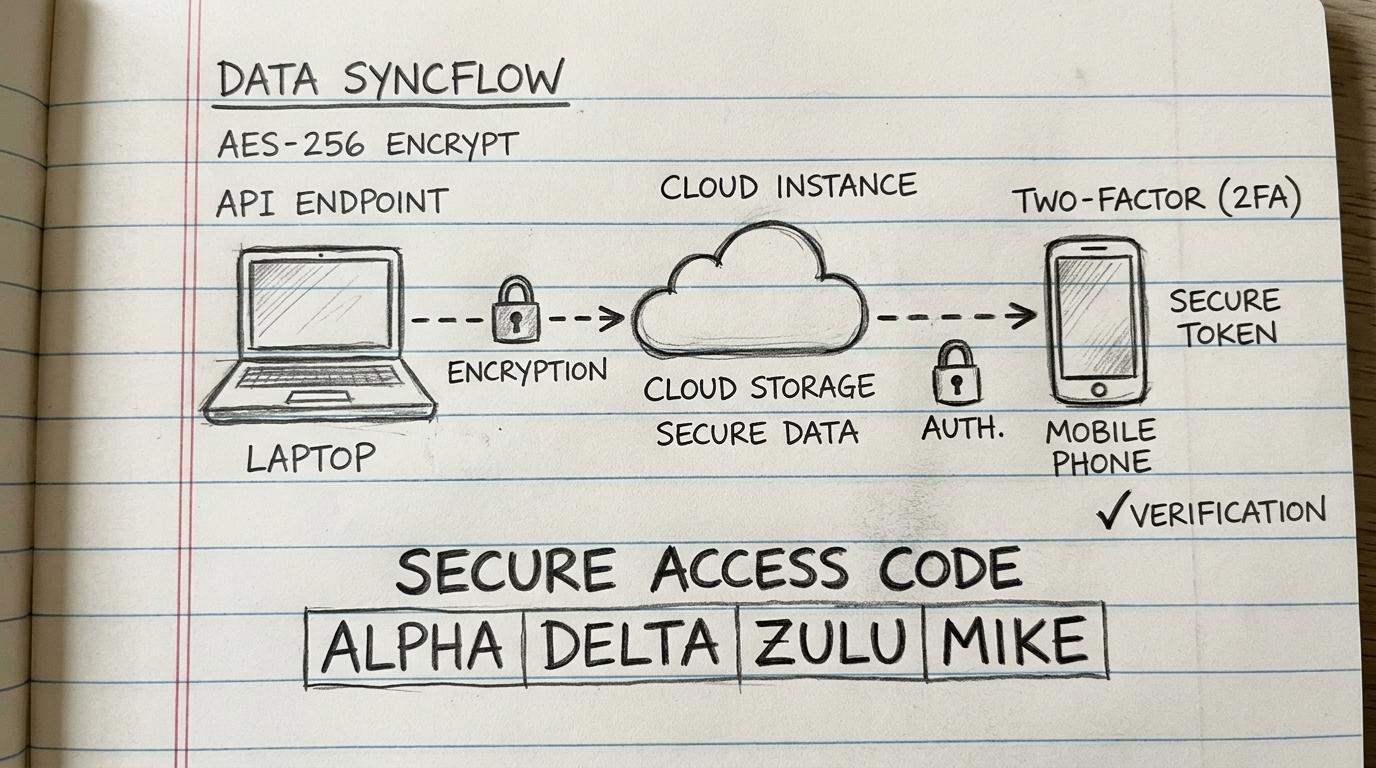 DATA SYNCFLOW
AES-256 ENCRYPT
API ENDPOINT
CLOUD INSTANCE
TWO-FACTOR (2FA)
ENCRYPTION
SECURE
TOKEN
LAPTOP
CLOUD STORAGE
SECURE DATA
AUTH.
MOBILE
PHONE
✓VERIFICATION
SECURE ACCESS CODE
ALPHA DELTA ZULU MIKE